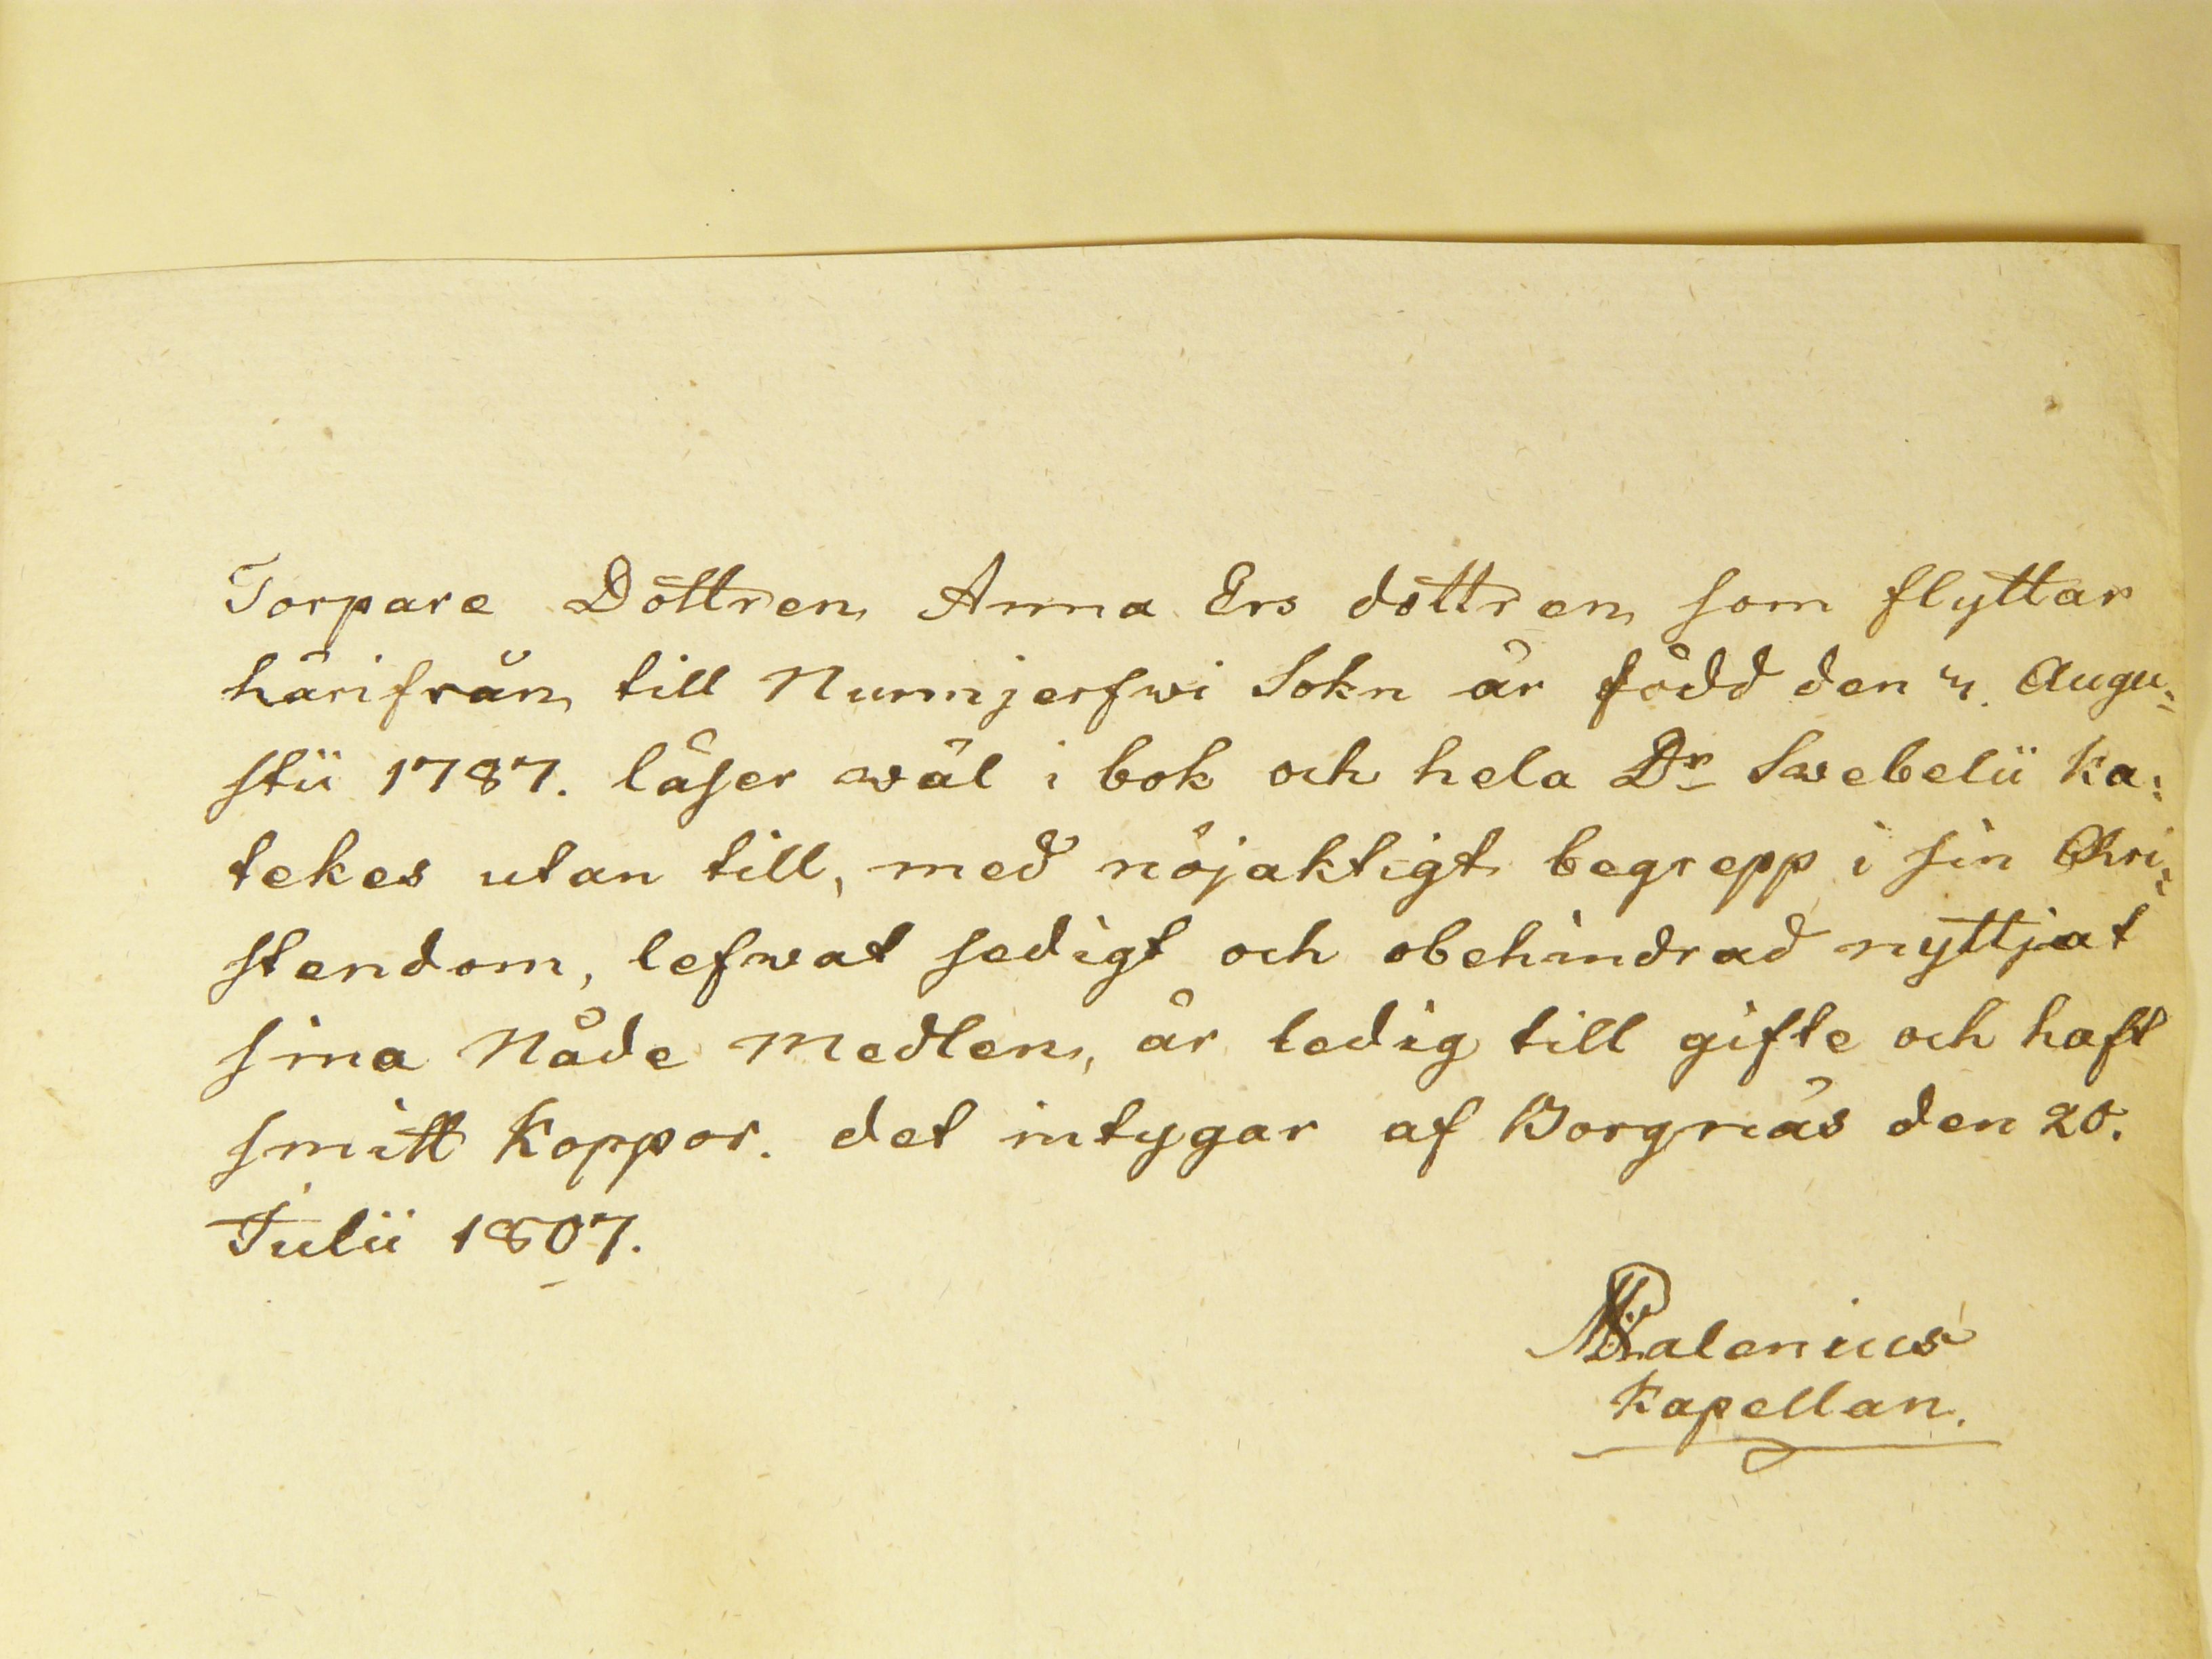 Torpare Döttren Anna Ers döttren som flyttar
härifrån till Nurmjerfwi Sokn är född den 4. Augu=
stii 1787. läser wäl i bok och hela Dr Swebelii ka=
tekes utan till, med nöjaktigt begrepp i sin Chri=
stendom, lefwat sedigt och obehindrad nyttjat
sina Nåde Medlen, är ledig till gifte och haft
smitt Koppor. det intygar af Borgnäs den 20.
Julii 1807.
Palenius
Kapellan.